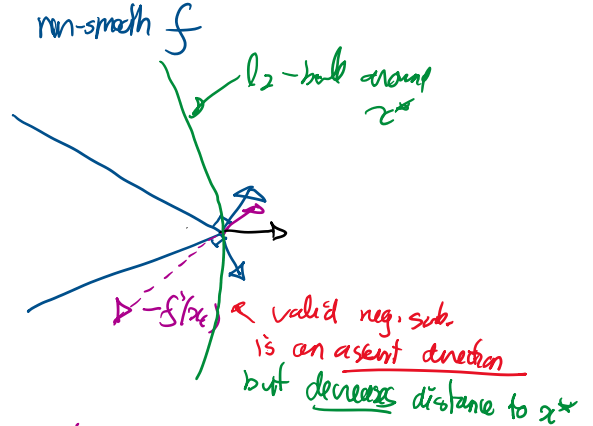 non-smooth f
l2-ball around
x*
-f'(xt)
valid neg. sub.
is an ascent direction
but decreases distance to x*